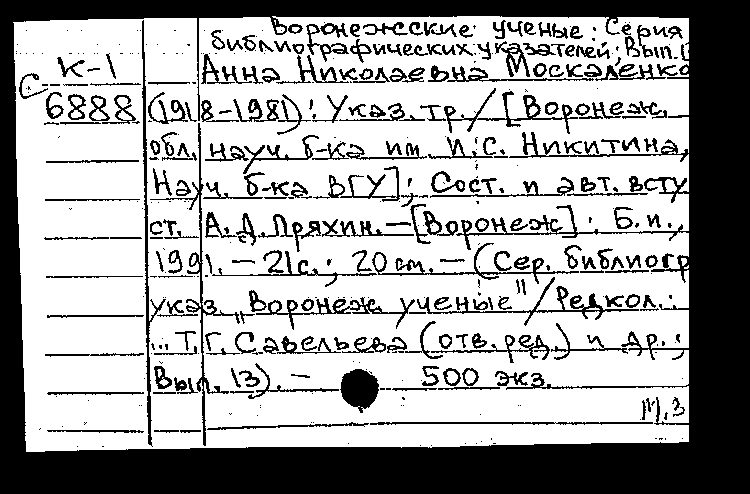 Воронежсские ученые: Серия
библиографических указателей; Вып. 13
С К-1 Анна Николаевна Москаленко
6888 (1918-1981): Указ. тр. / [Воронеж.
обл. науч. б-ка им. И. С. Никитина,
Науч. б-ка ВГУ]; Сост. и авт. всту
ст. А. Д. Пряхин. — [Воронеж]: Б. и.,
1991. — 21с.; 20 см. — (Сер. библиогр
указ. „Воронеж. ученые" / Редкол.:
... Т. Г. Савельева (отв. ред.) и др.;
Вып. 13). — 500 экз.